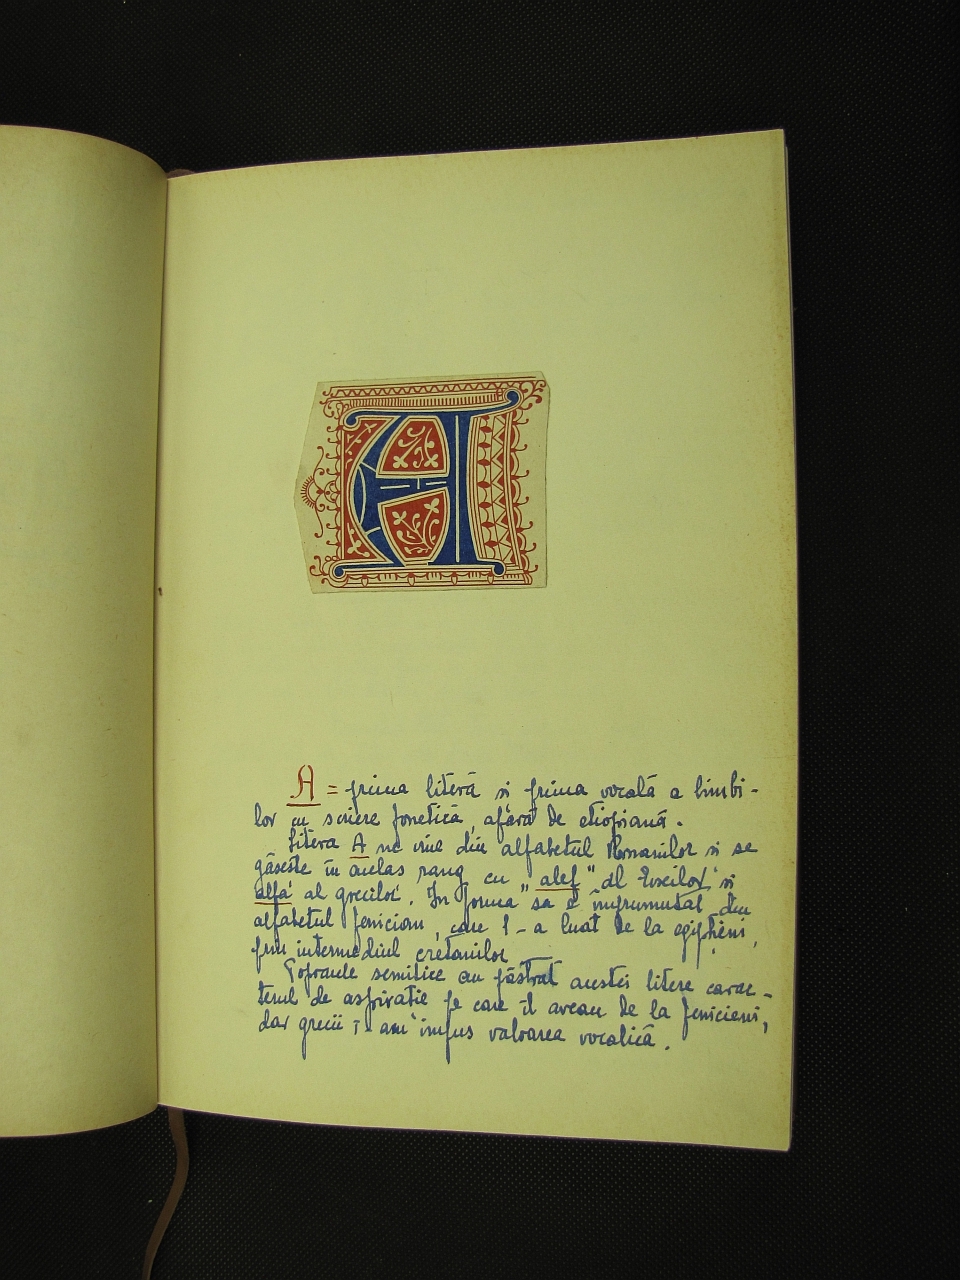 A
A = prima literă si prima vocală a limbi-
lor cu scriere fonetică, afară de etiopiană.
Litera A ne vine din alfabetul Romanilor si se
găseste în acelas rang cu "alef" al Evreilor si
alfa al grecilor. In forma sa e imprumutat din
alfabetul fenician, care l-a luat de la egipteni,
prin intermediul cretanilor
Popoarele semitice au păstrat acestei litere carac-
terul de aspiratie pe care îl aveau de la fenicieni,
dar grecii i-au impus valoarea vocalică.